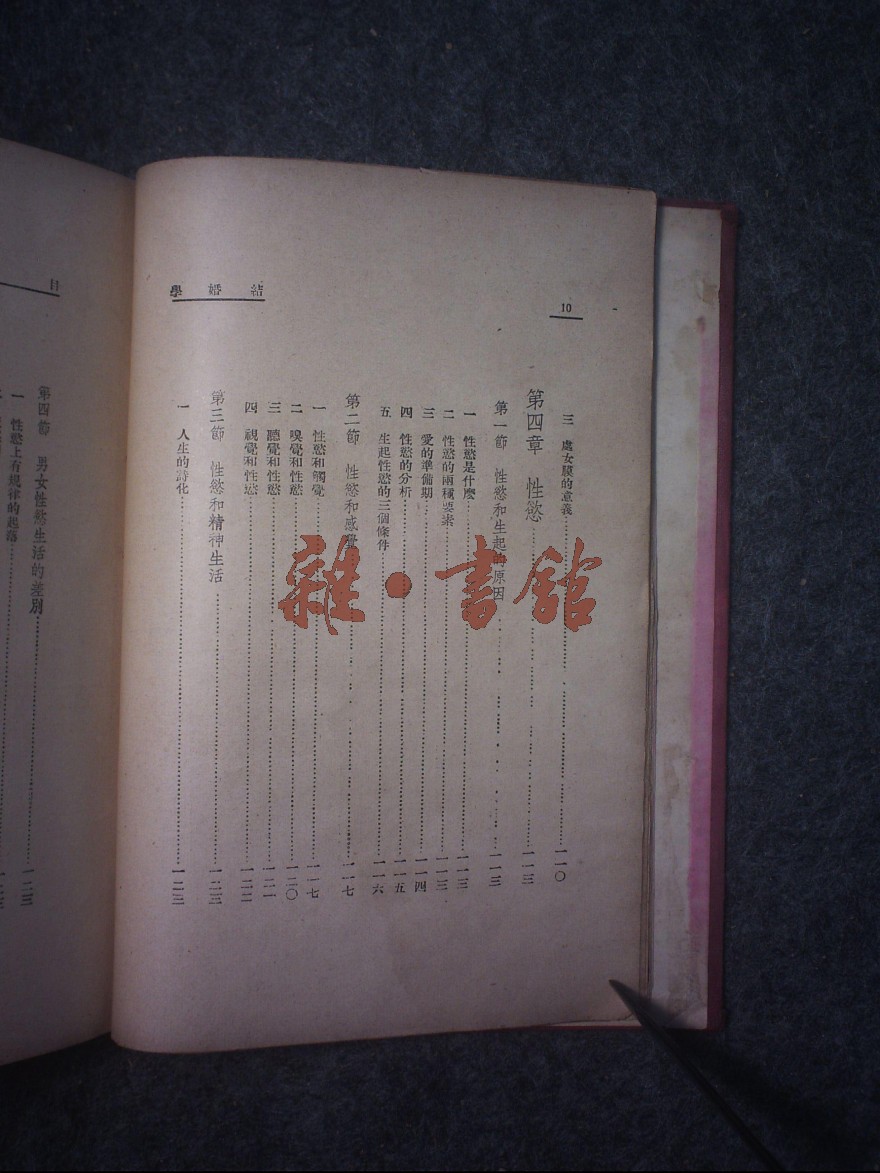 10
結婚學
三 處女膜的意義……一一〇
第四章 性慾……一一三
第一節 性慾和生起的原因……一一三
一 性慾是什麼……一一三
二 性慾的兩種要素……一一三
三 愛的準備期……一一四
四 性慾的分析……一一五
五 生起性慾的三個條件……一一六
第二節 性慾和感覺……一一七
一 性慾和觸覺……一一七
二 嗅覺和性慾……一二〇
三 聽覺和性慾……一二一
四 視覺和性慾……一二二
第三節 性慾和精神生活……一二三
一 人生的詩化……一二三
目
第四節 男女性慾生活的差別……
一 性慾上有規律的起落……一二三
雜·書館